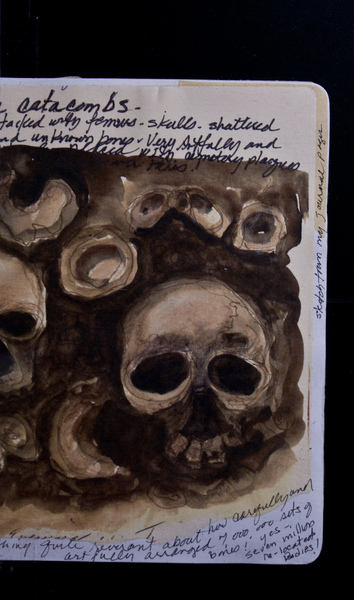 catacombs-
stacked with femurs - skulls - shattered
and unknown bones - Very artfully and
laid with cemetery plaques
sketch from my journal pages
quite reverent about how carefully and
artfully arranged 7,000,000 sets of
bones! yes -
seven million
re-located
bodies!